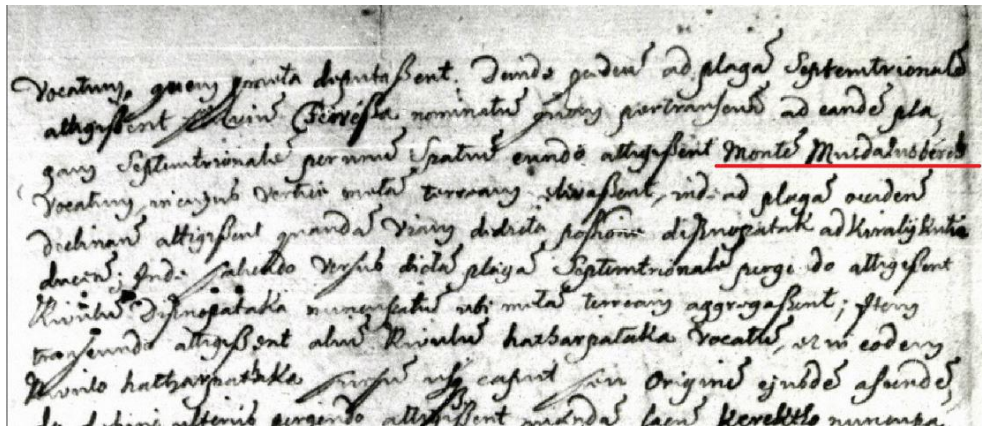 vocatum, quem p meta deputassent. Deinde pcedend ad plagā Septemtrionalē
attigissent fluviū nominatū quem pertranseund ad eandē pla,
gam Septemtrionalē per unū Spatiū eundo attigissent Montē Muedalusbércz
vocatum, in cujus vertice metā terream elevassent, inde ad plagā occiden
declinan attigissent quandā viam de dicta possione disznopatak ad Kiralykutia
ducen; Inde versus dictā plagā Septemtrionalē attigissent
Rivulū Disznopataka nuncupatū ubi metā terream aggregassent; Item
transeundo attigissent aliū Rivulū hatharpataka vocatū, et in eodem
Rivulo hatharpataka sursū usq caput seu Originē ejusdē ascendē,
pergendo attigissent quandā Kerektho nuncupa